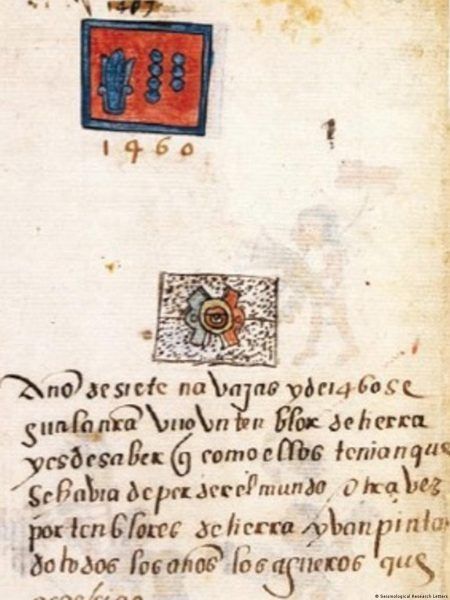 1460
Año de siete navajas y de 1460 se
gun la nra vuo vn ten blor de tierra
y es de saber q como ellos tenian que
se habia de perder el mundo otra vez
por ten blores de tierra y ban pinta
do todos los años los agueros que
© Seismological Research Letters